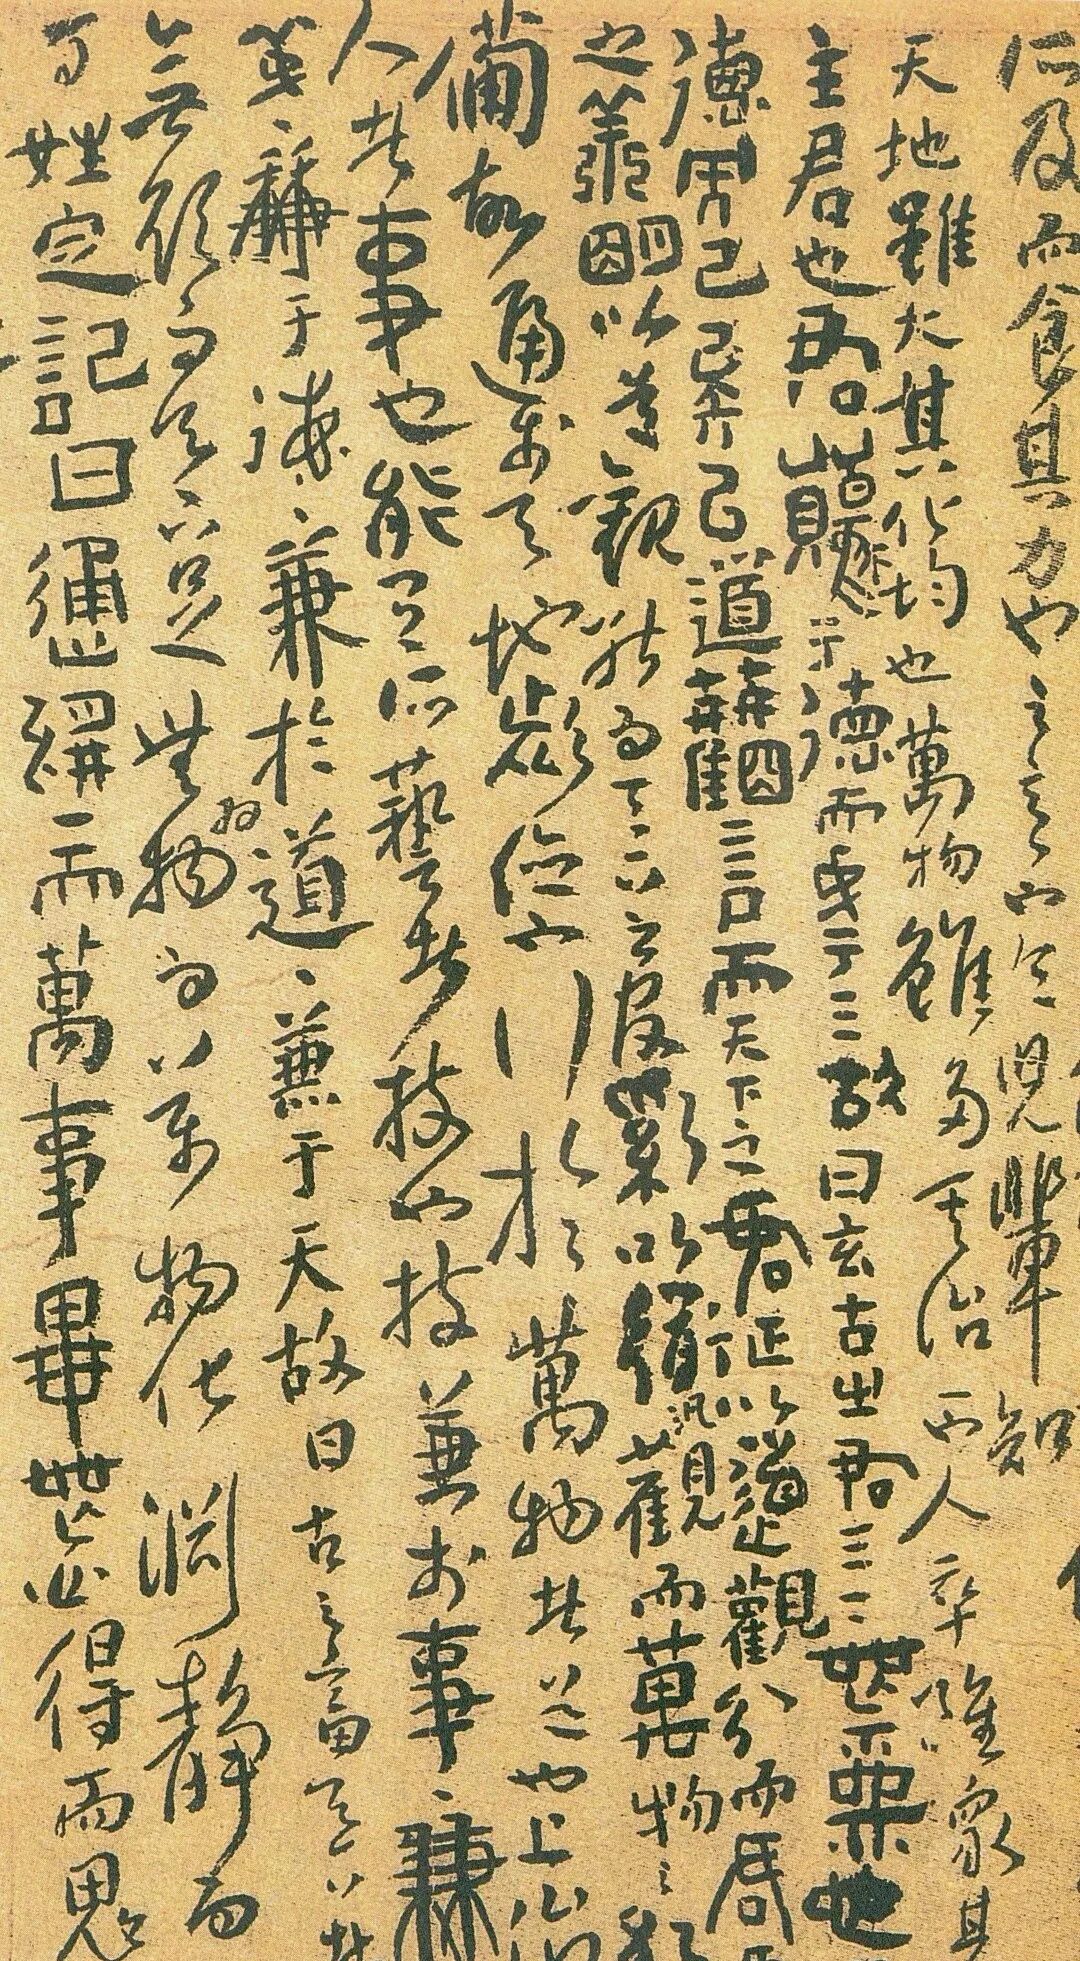 而食其力也兒輩知
天地雖大其化均也萬物雖多其治一人卒雖衆其
主君也君原于德而成于天故曰玄古之君天下無為也
德而已矣以道觀言而天下之君正以道觀分而君臣
之義明以道觀能而天下之官治以道汎觀而萬物之應
備故通於天地者德也行於萬物者道也上治
人者事也能有所藝者技也技兼於事事兼
義義兼于德德兼於道道兼于天故曰古之畜天下者
無欲而天下足無為而萬物化淵靜而
百姓定記曰通於一而萬事畢無心得而鬼